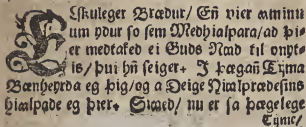 ELskuleger Brædur/ Eñ vier aminnu
um ydur so sem Medhialpara/ ad þi-
er medtaked ei Guds Nad til onyt-
is/ þui hñ seiger. I þægañ Tijma
Bænheyrda eg þig/ og a Deige Hialprædesins
hialpade eg þier. Siaed/ nu er sa þægelege
Tijme/